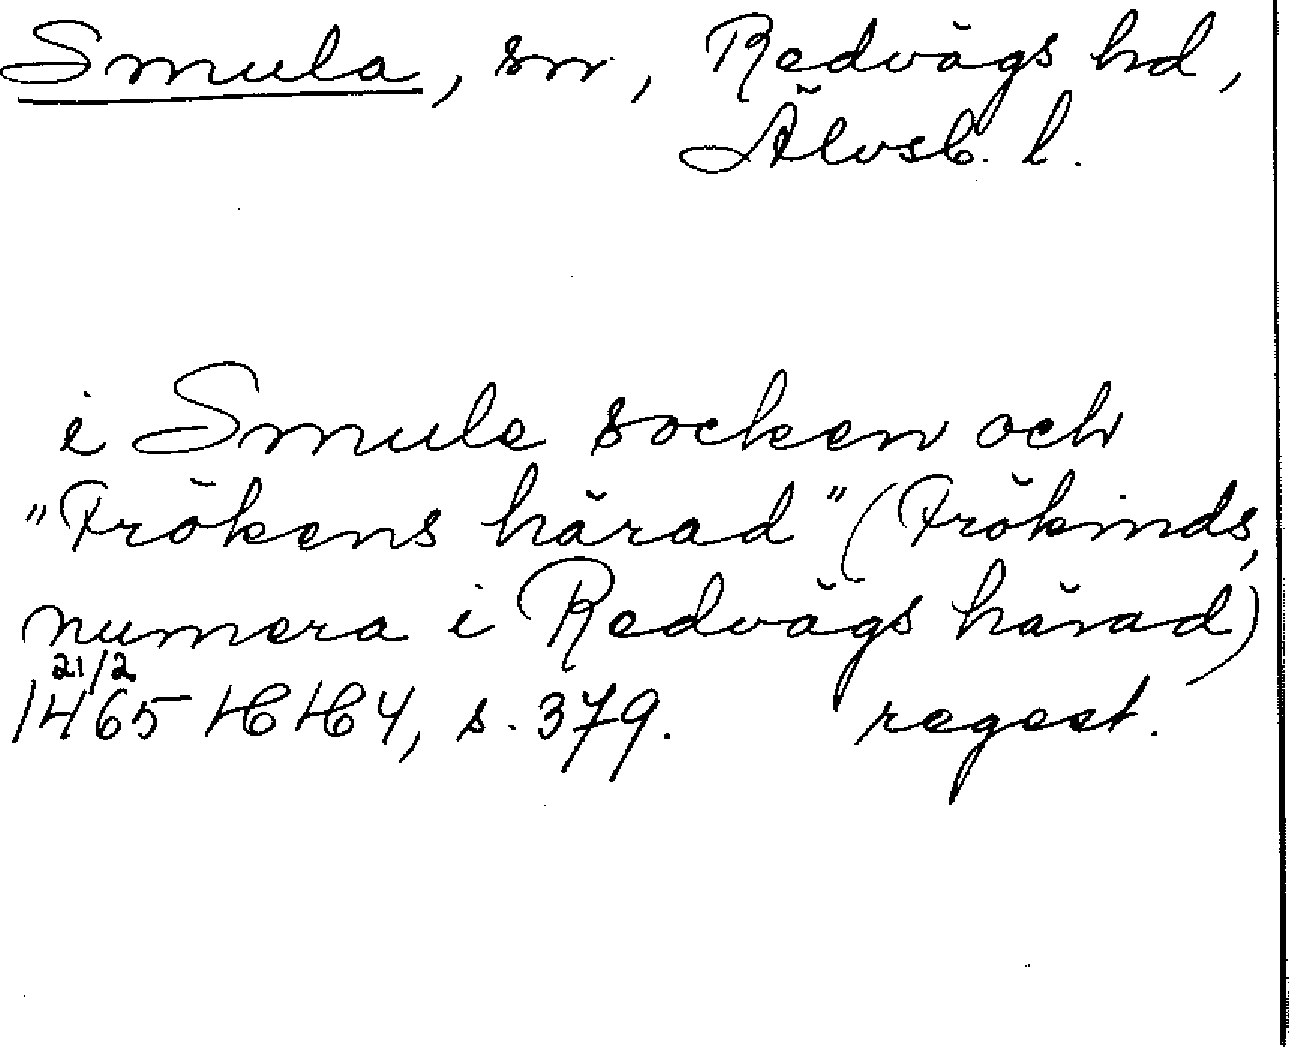 Smula, sn, Redvägs hd,
Älvsb. l.
i Smula socken och
"Frökens härad" (Frökinds,
numera i Redvägs härad)
21/2
1465 HH 4, s. 379. regest.